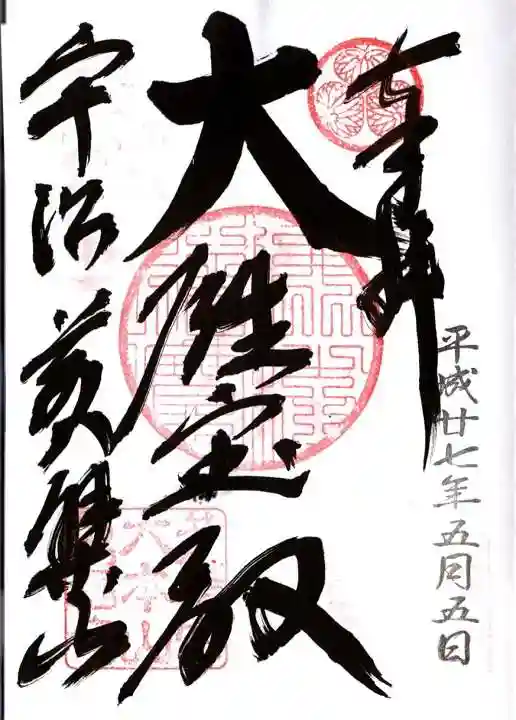 奉拝
平成廿七年五月五日
大雄宝殿
宇治黄檗山